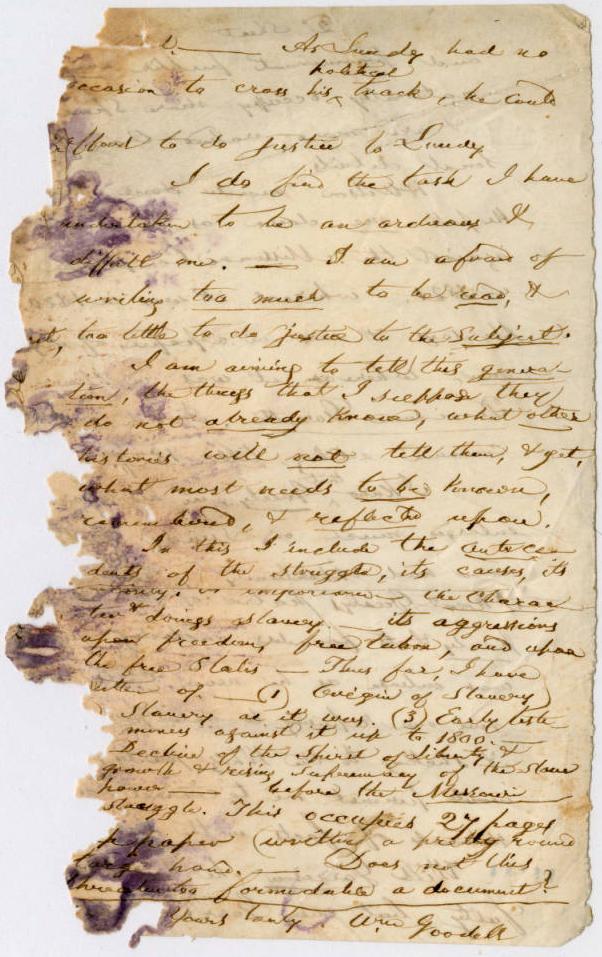 As Lundy had no
political
occasion to cross his ^ track, he could
afford to do justice to Lundy
I do find the task I have
undertaken to be an arduous &
difficult one. — I am afraid of
writing too much to be read, &
yet, too little to do justice to the subject.
I am aiming to tell this genera-
tion, the things that I suppose they
do not already know, what other
histories will not tell them, & yet,
what most needs to be known,
remembered, & reflected upon.
In this I include the antece-
dents of the struggle, its causes, its
importance — the charac-
ter & doings slavery — its aggressions
upon freedom, free labor, and upon
the free States — Thus far, I have
written of — (1) Origin of Slavery
Slavery as it was. (3) Early testi-
monies against it up to 1800 —
Decline of the Spirit of Liberty &
growth & rising supremacy of the slave
power — before the Missouri
struggle. This occupies 27 pages
paper (written a pretty round
large hand. — Does not this
threaten formidable a document?
Yours truly Wm Goodell